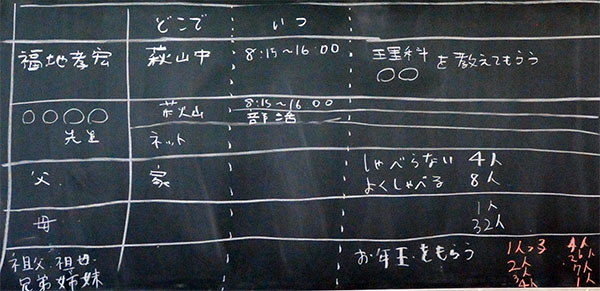 どこで いつ
福地孝宏 萩山中 8:15～16:00 理科を教えてもらう
○○
○○○○先生 萩山 8:15～16:00
部活
ネット
父 家 しゃべらない 4人
よくしゃべる 8人
母 1人
32人
祖父・祖母 お年玉をもらう 1人 4人
兄弟姉妹 2人 7人
4人 1人